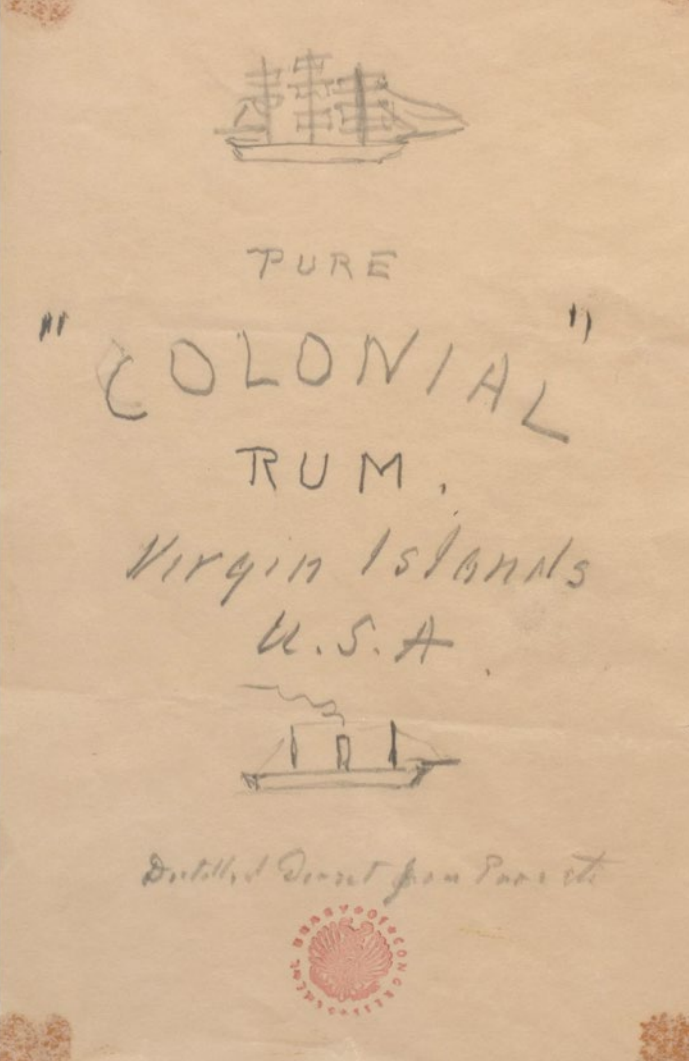 PURE
"COLONIAL"
RUM.
Virgin Islands
U.S.A.
Distilled Direct from Pure
LIBRARY OF CONGRESS